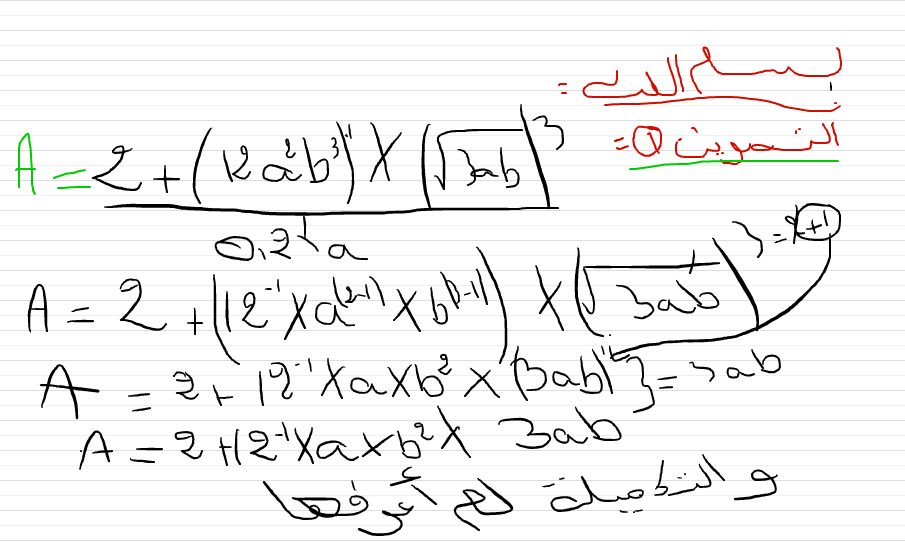 بسم الله =
التمرين ① =
A = 2 + (12a²b³)⁻¹ X (√3ab)³
0,2⁻¹a
A = 2 + (12⁻¹ X a⁽²⁻¹⁾ X b⁽³⁻¹⁾) X (√3ab)³⁼²⁺¹
A = 2 + 12⁻¹ X a X b² X (3ab)¹ } = 3ab
A = 2 + 12⁻¹ X a X b² X 3ab
و التكميلة لم أعرفها